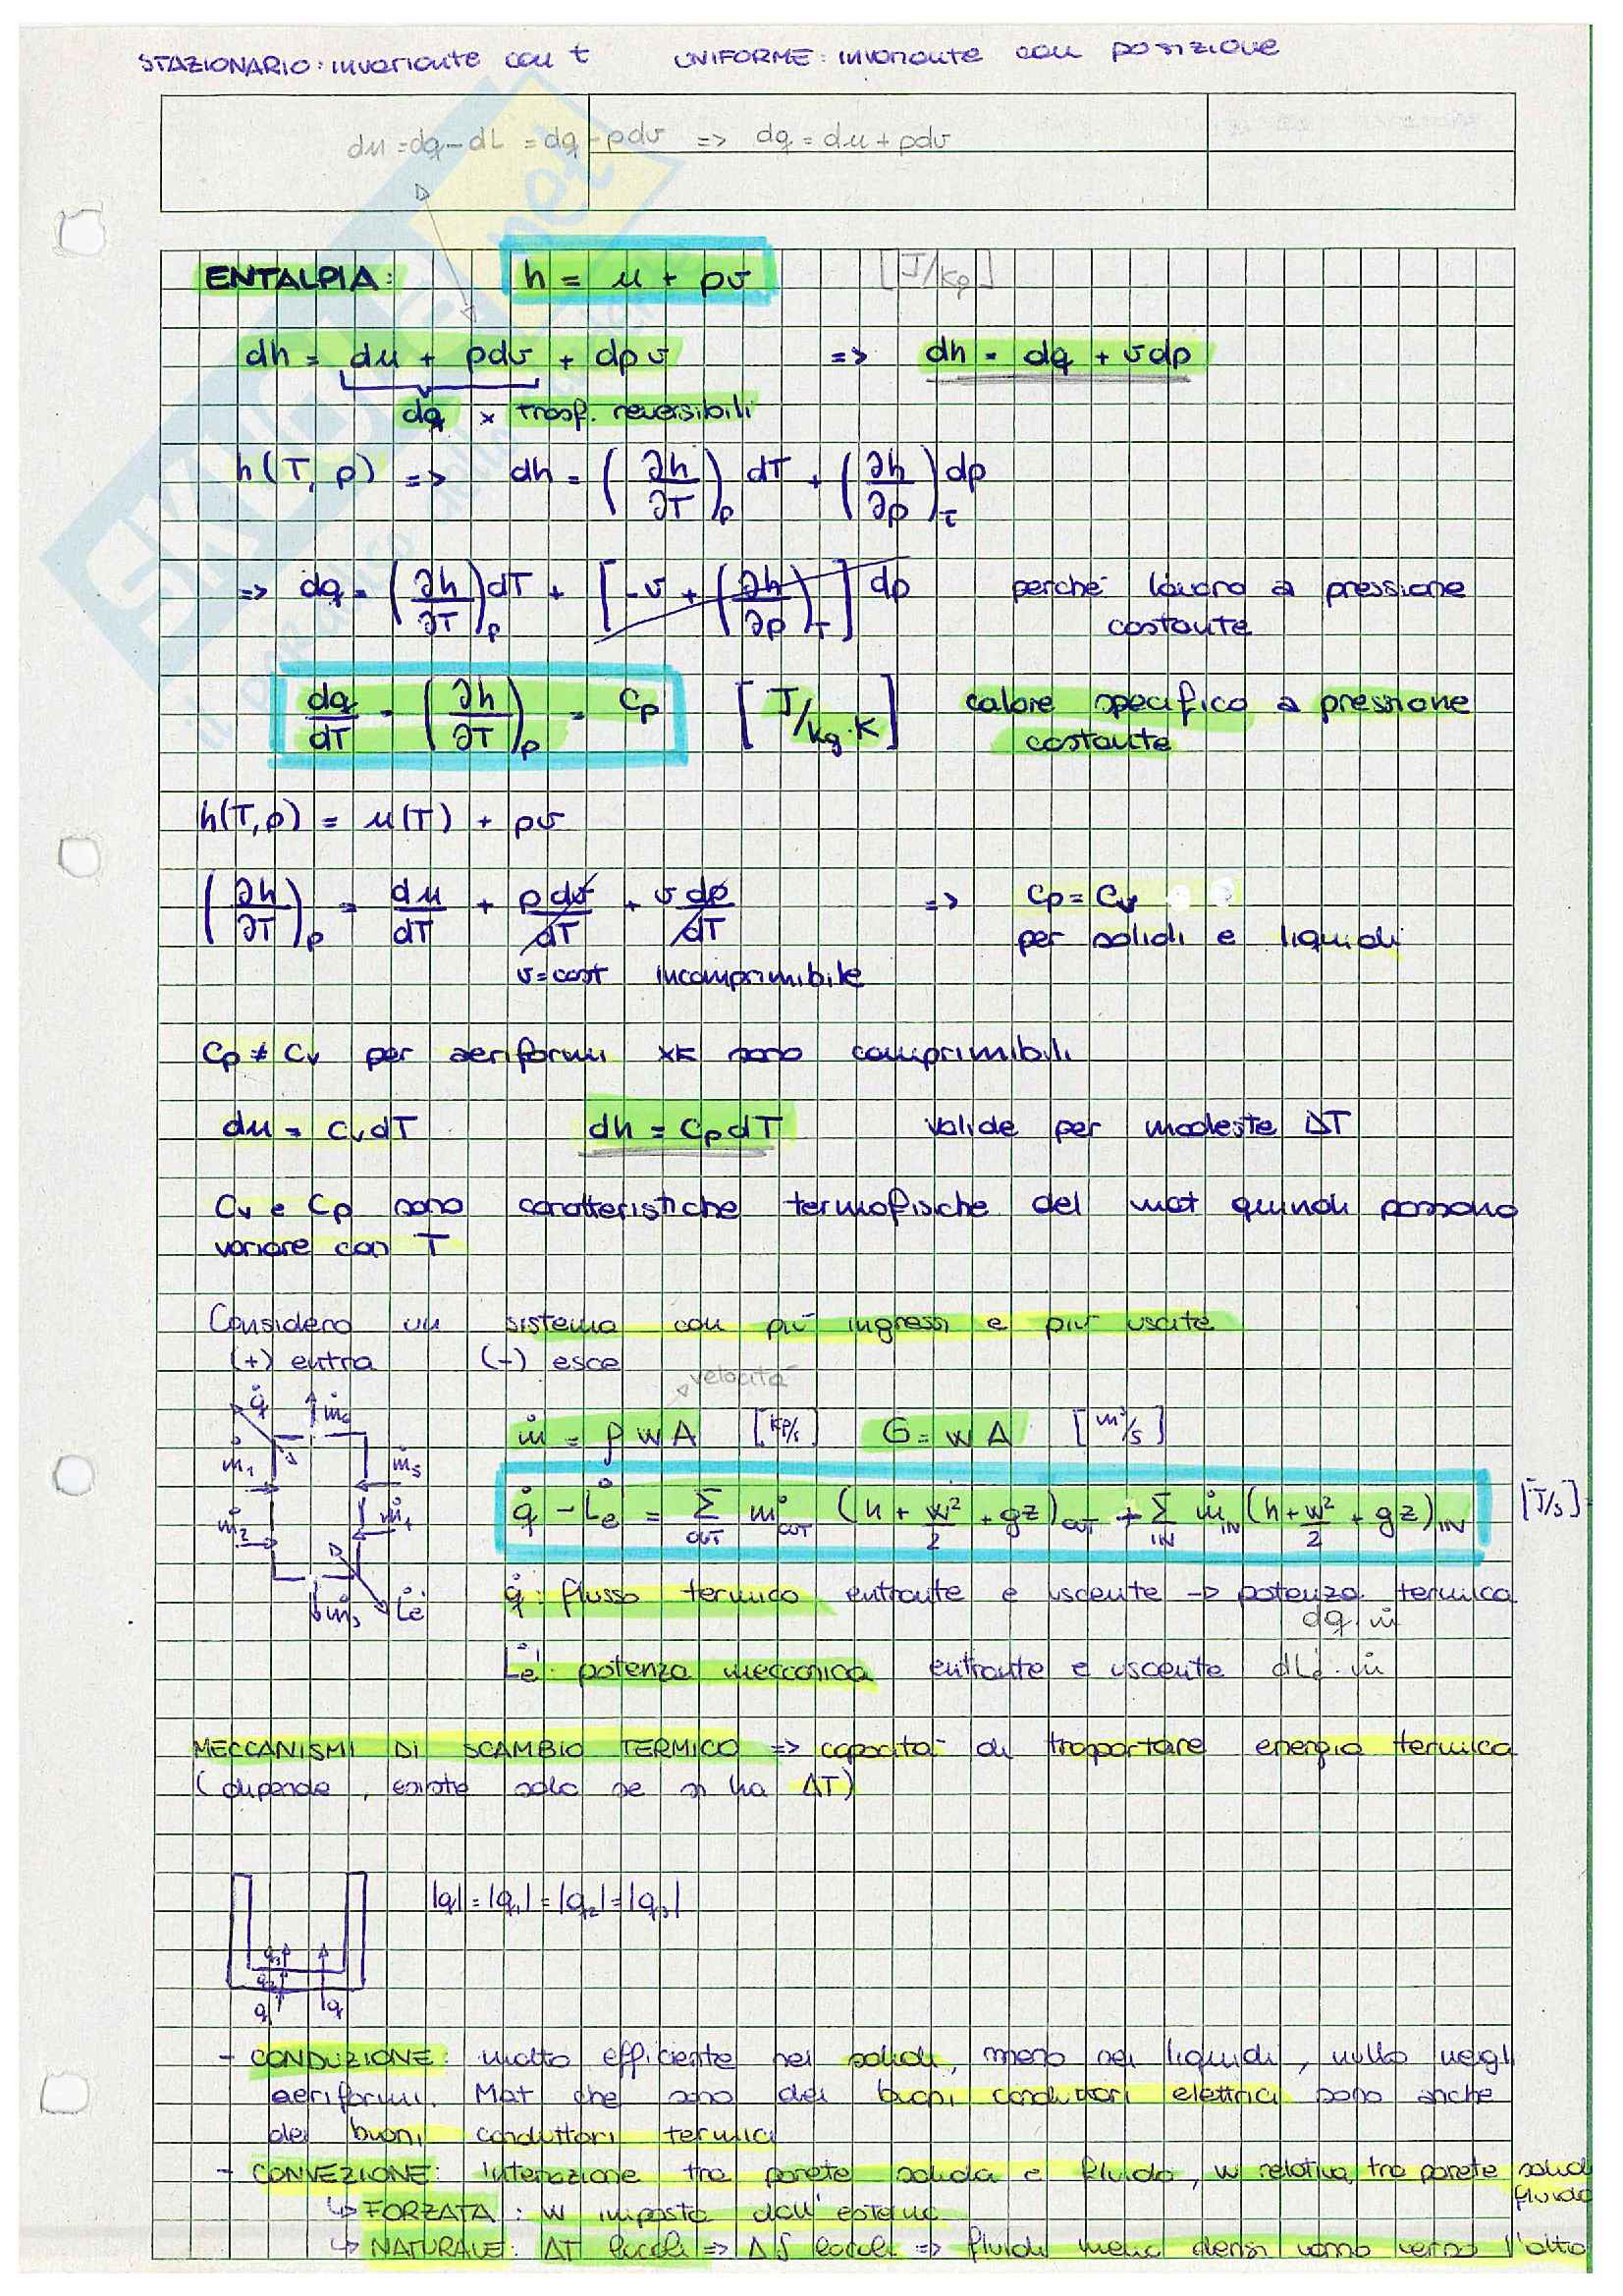 STAZIONARIO: invariante con t UNIFORME: invariante con posizione
du = dq - dL = dq - pdv => dq = du + pdv
ENTALPIA: h = u + pv [J/kg]
dh = du + pdv + dp v => dh = dq + vdp
dq x trasf. reversibili
h(T, p) => dh = (∂h/∂T)p dT + (∂h/∂p)T dp
=> dq = (∂h/∂T)p dT + [-v + (∂h/∂p)T] dp perché lavoro a pressione
costante
dq/dT = (∂h/∂T)p = Cp [J/kg·K] calore specifico a pressione
costante
h(T,p) = u(T) + pv
(∂h/∂T)p = du/dT + pdv/dT + vdp/dT => Cp = Cv
per solidi e liquidi
v=cost incomprimibile
Cp ≠ Cv per aeriformi xk sono comprimibili
du = CvdT dh = CpdT valide per modeste ΔT
Cv e Cp sono caratteristiche termofisiche del mat quindi possono
variare con T
Considero un sistema con più ingressi e più uscite
(+) entra (-) esce
velocità
ṁ = ρ w A [kg/s] G = w A [m³/s]
q̇ - L̇e = Σ OUT ṁOUT (h + w²/2 + gz)OUT + Σ IN ṁIN (h + w²/2 + gz)IN [J/s]
q̇ ṁ1 ṁ2 ṁ3 ṁ4 ṁ5 L̇e
q̇: flusso termico entrante e uscente -> potenza termica
dq·ṁ
L̇e: potenza meccanica entrante e uscente dLe·ṁ
MECCANISMI DI SCAMBIO TERMICO => capacità di trasportare energia termica
(dipende, esiste solo se si ha ΔT)
|q| = |q1| = |q2| = |q3|
q3
q2
q1 q
- CONDUZIONE: molto efficiente nei solidi, meno nei liquidi, nullo negli
aeriformi. Mat che sono dei buoni conduttori elettrici sono anche
dei buoni conduttori termici
- CONVEZIONE: Interazione tra parete solida e fluido, w relativa tra parete solida
fluido
↳ FORZATA: w imposta dall'esterno
↳ NATURALE: ΔT locali => Δρ locali => fluidi meno densi vanno verso l'alto